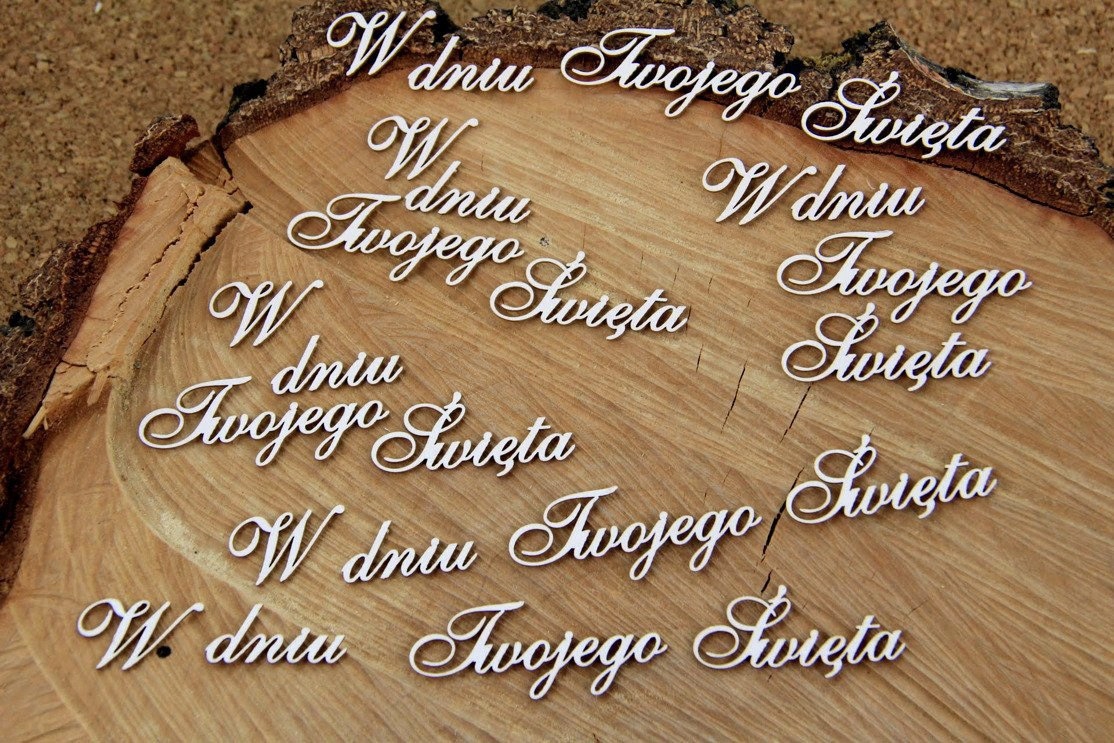 W dniu Twojego Święta
W
dniu
Twojego
Święta
W dniu
Twojego
Święta
W
dniu
Twojego Święta
W dniu Twojego Święta
W dniu Twojego Święta